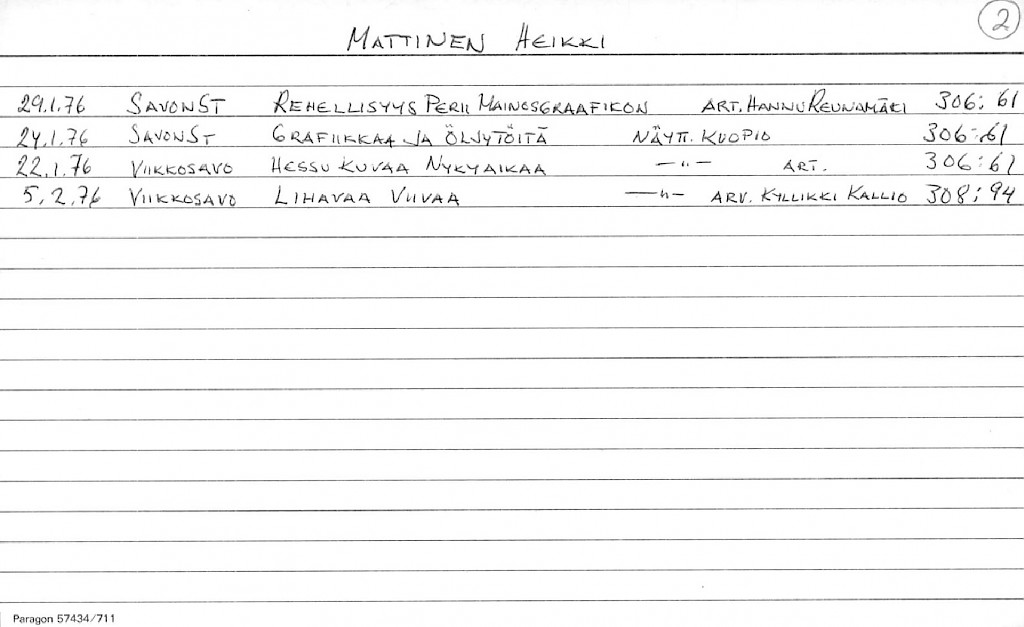 2
MATTINEN HEIKKI
29.1.76 SAVONST REHELLISYYS PERII MAINOSGRAAFIKON ART. HANNU REUNAMÄKI 306: 61
24.1.76 SAVONST GRAFIIKKAA JA ÖLJYTÖITÄ NÄYTT. KUOPIO 306:61
22.1.76 VIIKKOSAVO HESSU KUVAA NYKYAIKAA —"— ART. 306:61
5.2.76 VIIKKOSAVO LIHAVAA VIIVAA —"— ARV. KYLLIKKI KALLIO 308: 94
Paragon 57434/711